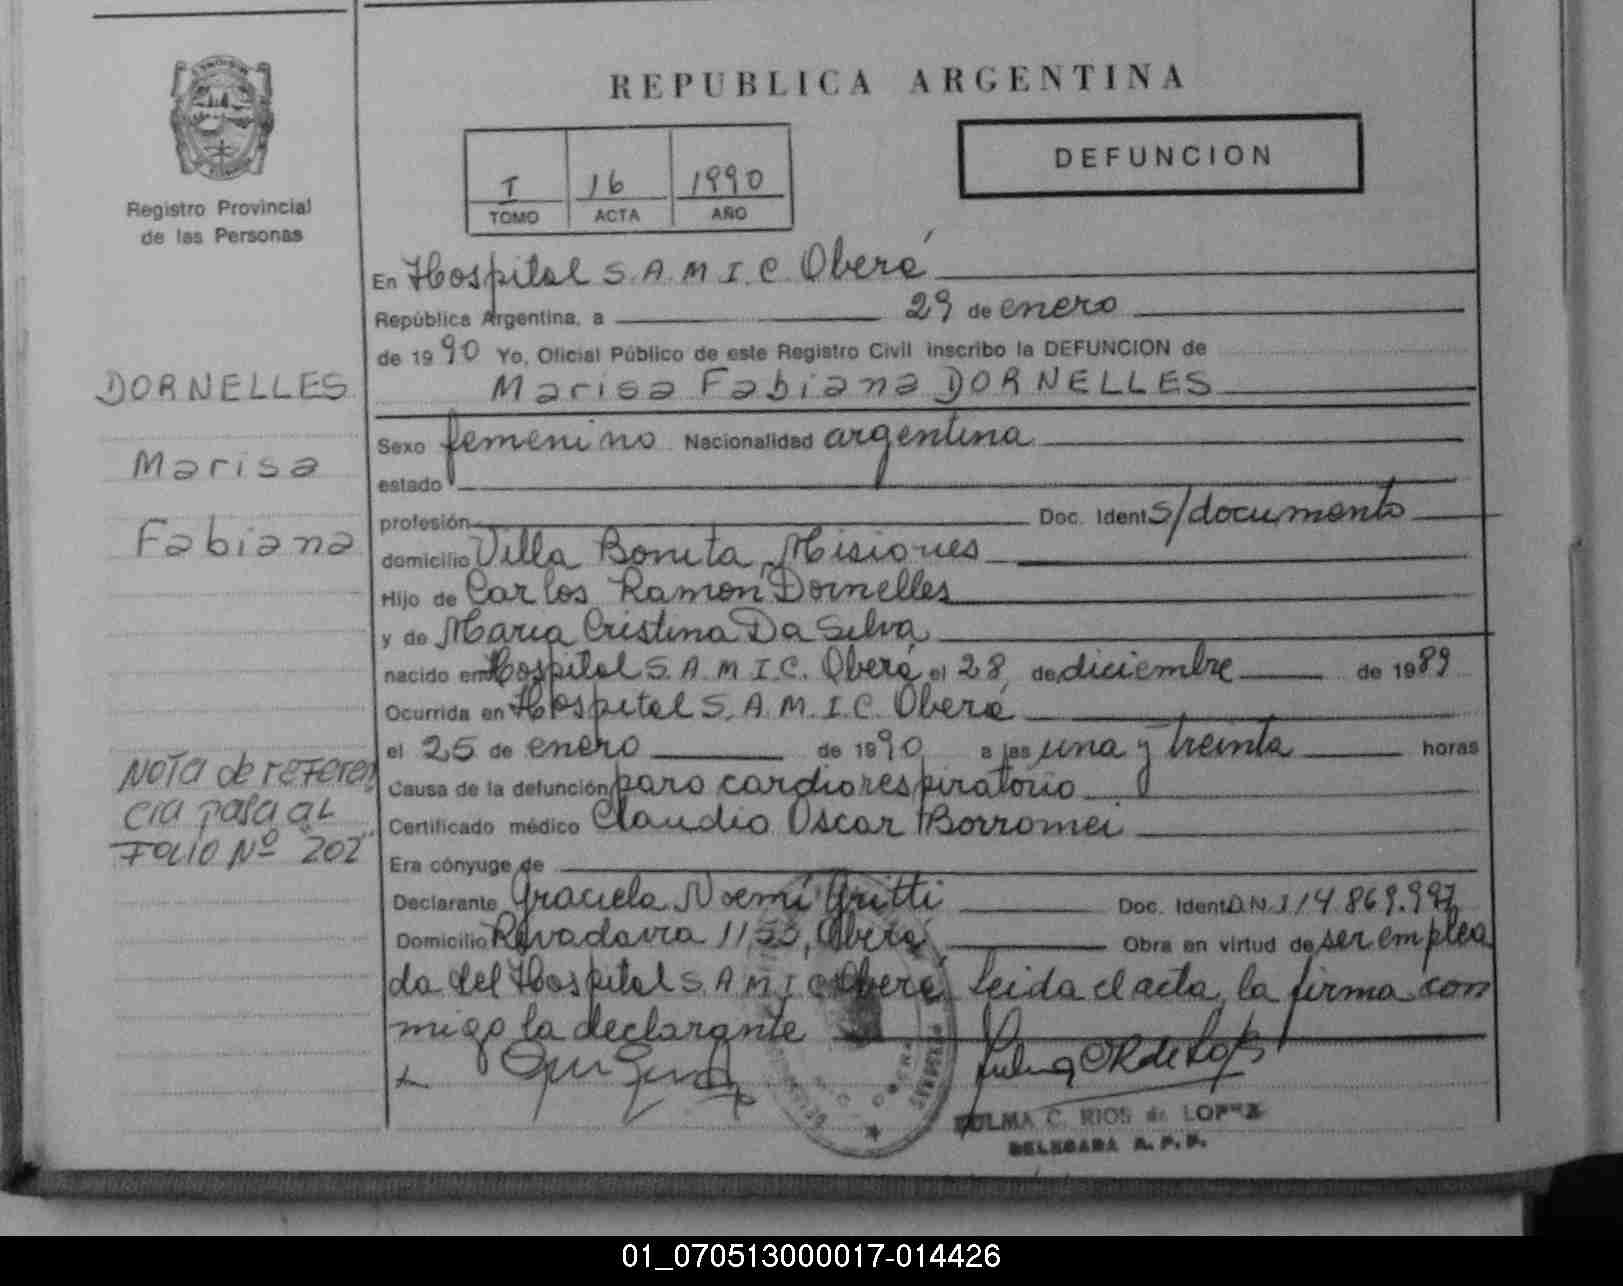 REPUBLICA ARGENTINA
DEFUNCION
I 16 1990
TOMO ACTA AÑO
Registro Provincial
de las Personas
DORNELLES
Marisa
Fabiana
Nota de referen
cia pasa al
Folio Nº "202"
En Hospital S.A.M.I.C. Oberá
República Argentina, a 29 de enero
de 1990 Yo, Oficial Público de este Registro Civil inscribo la DEFUNCION de
Marisa Fabiana DORNELLES
Sexo femenino Nacionalidad argentina
estado
profesión Doc. Ident S/documento
domicilio Villa Bonita, Misiones
Hijo de Carlos Ramon Dornelles
y de Maria Cristina Da Silva
nacido en Hospital S.A.M.I.C. Oberá el 28 de diciembre de 1989
Ocurrida en Hospital S.A.M.I.C. Oberá
el 25 de enero de 1990 a las una y treinta horas
Causa de la defunción paro cardiorespiratorio
Certificado médico Claudio Oscar Borromei
Era cónyuge de
Declarante Graciela Noemí Gritti Doc. Ident D.N.I 14.869.997
Domicilio Rivadavia 1150, Oberá Obra en virtud de ser emplea
da del Hospital S.A.M.I.C. Oberá Leida el acta, la firma con
migo la declarante
ZULMA C. RIOS de LOPEZ
DELEGADA R. P. P.
01_070513000017-014426